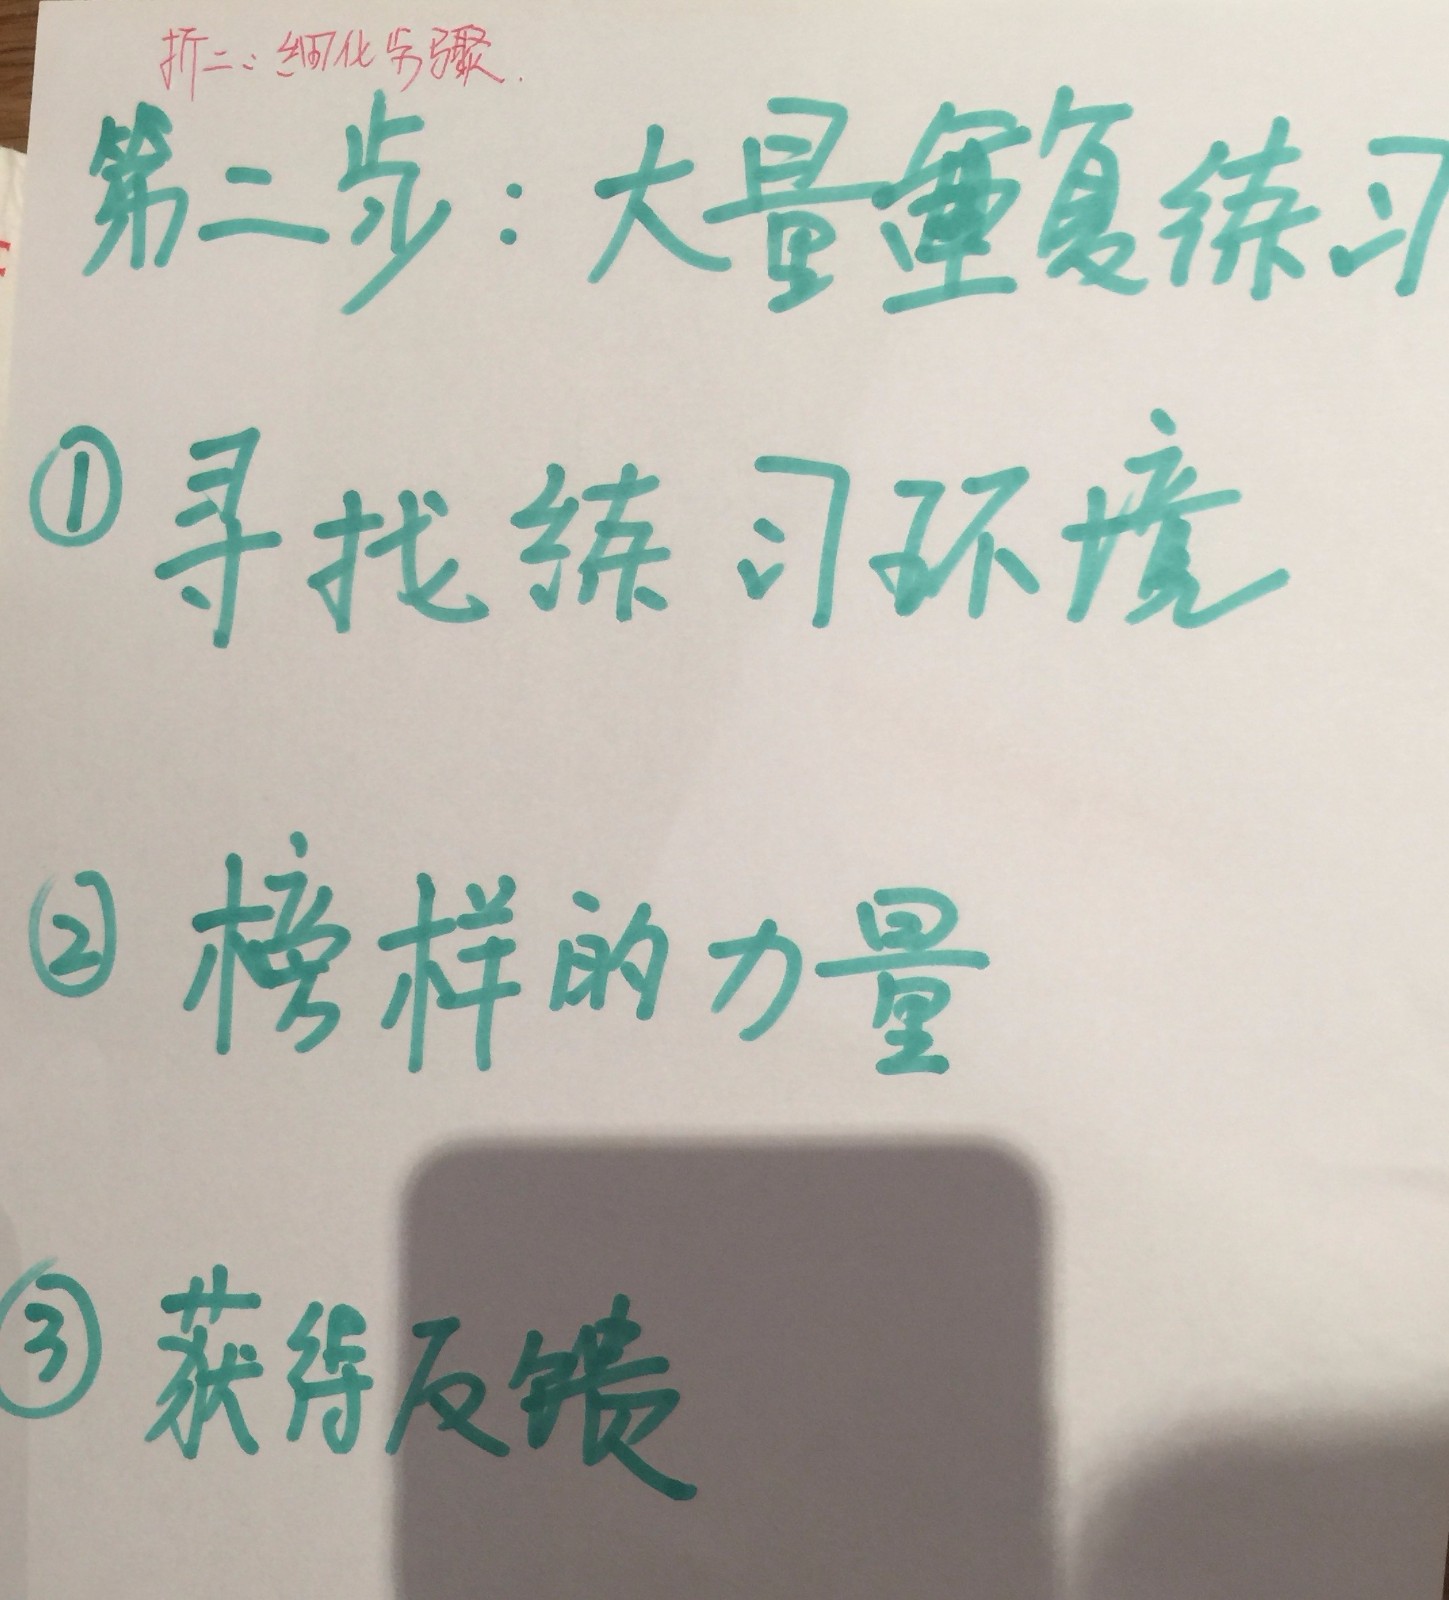 折二：细化步骤.
第二步：大量重复练习
① 寻找练习环境
② 榜样的力量
③ 获得反馈